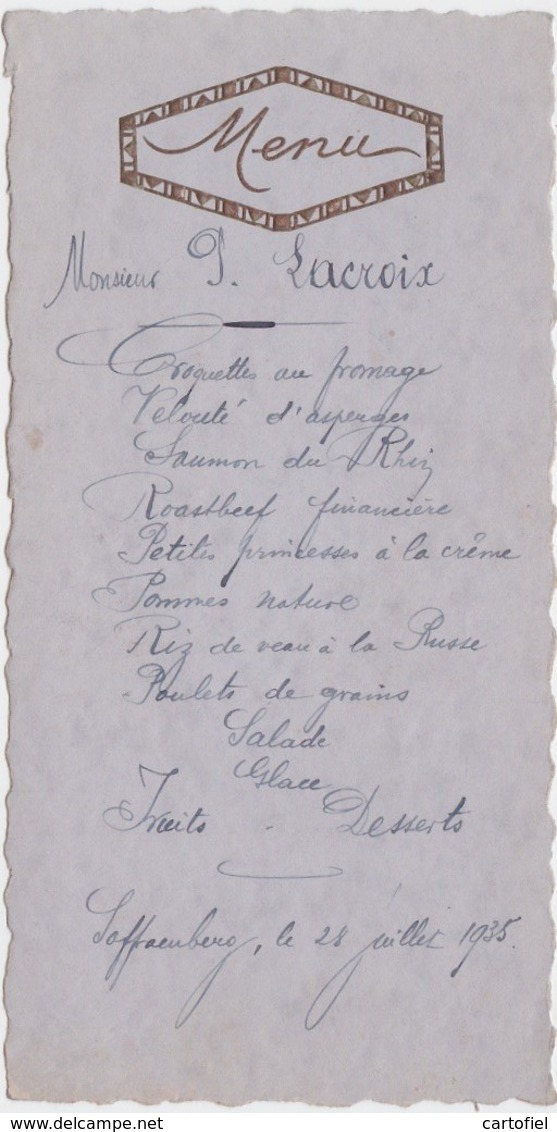 Menu
Monsieur P. Lacroix
Croquettes au fromage
Velouté d'asperges
Saumon du Rhin
Roastbeef financière
Petites princesses à la crême
Pommes nature
Riz de veau à la Russe
Poulets de grains
Salade
Glace
Fruits - Desserts
Saffraenberg, le 28 juillet 1935.
delcampe.net
cartofiel